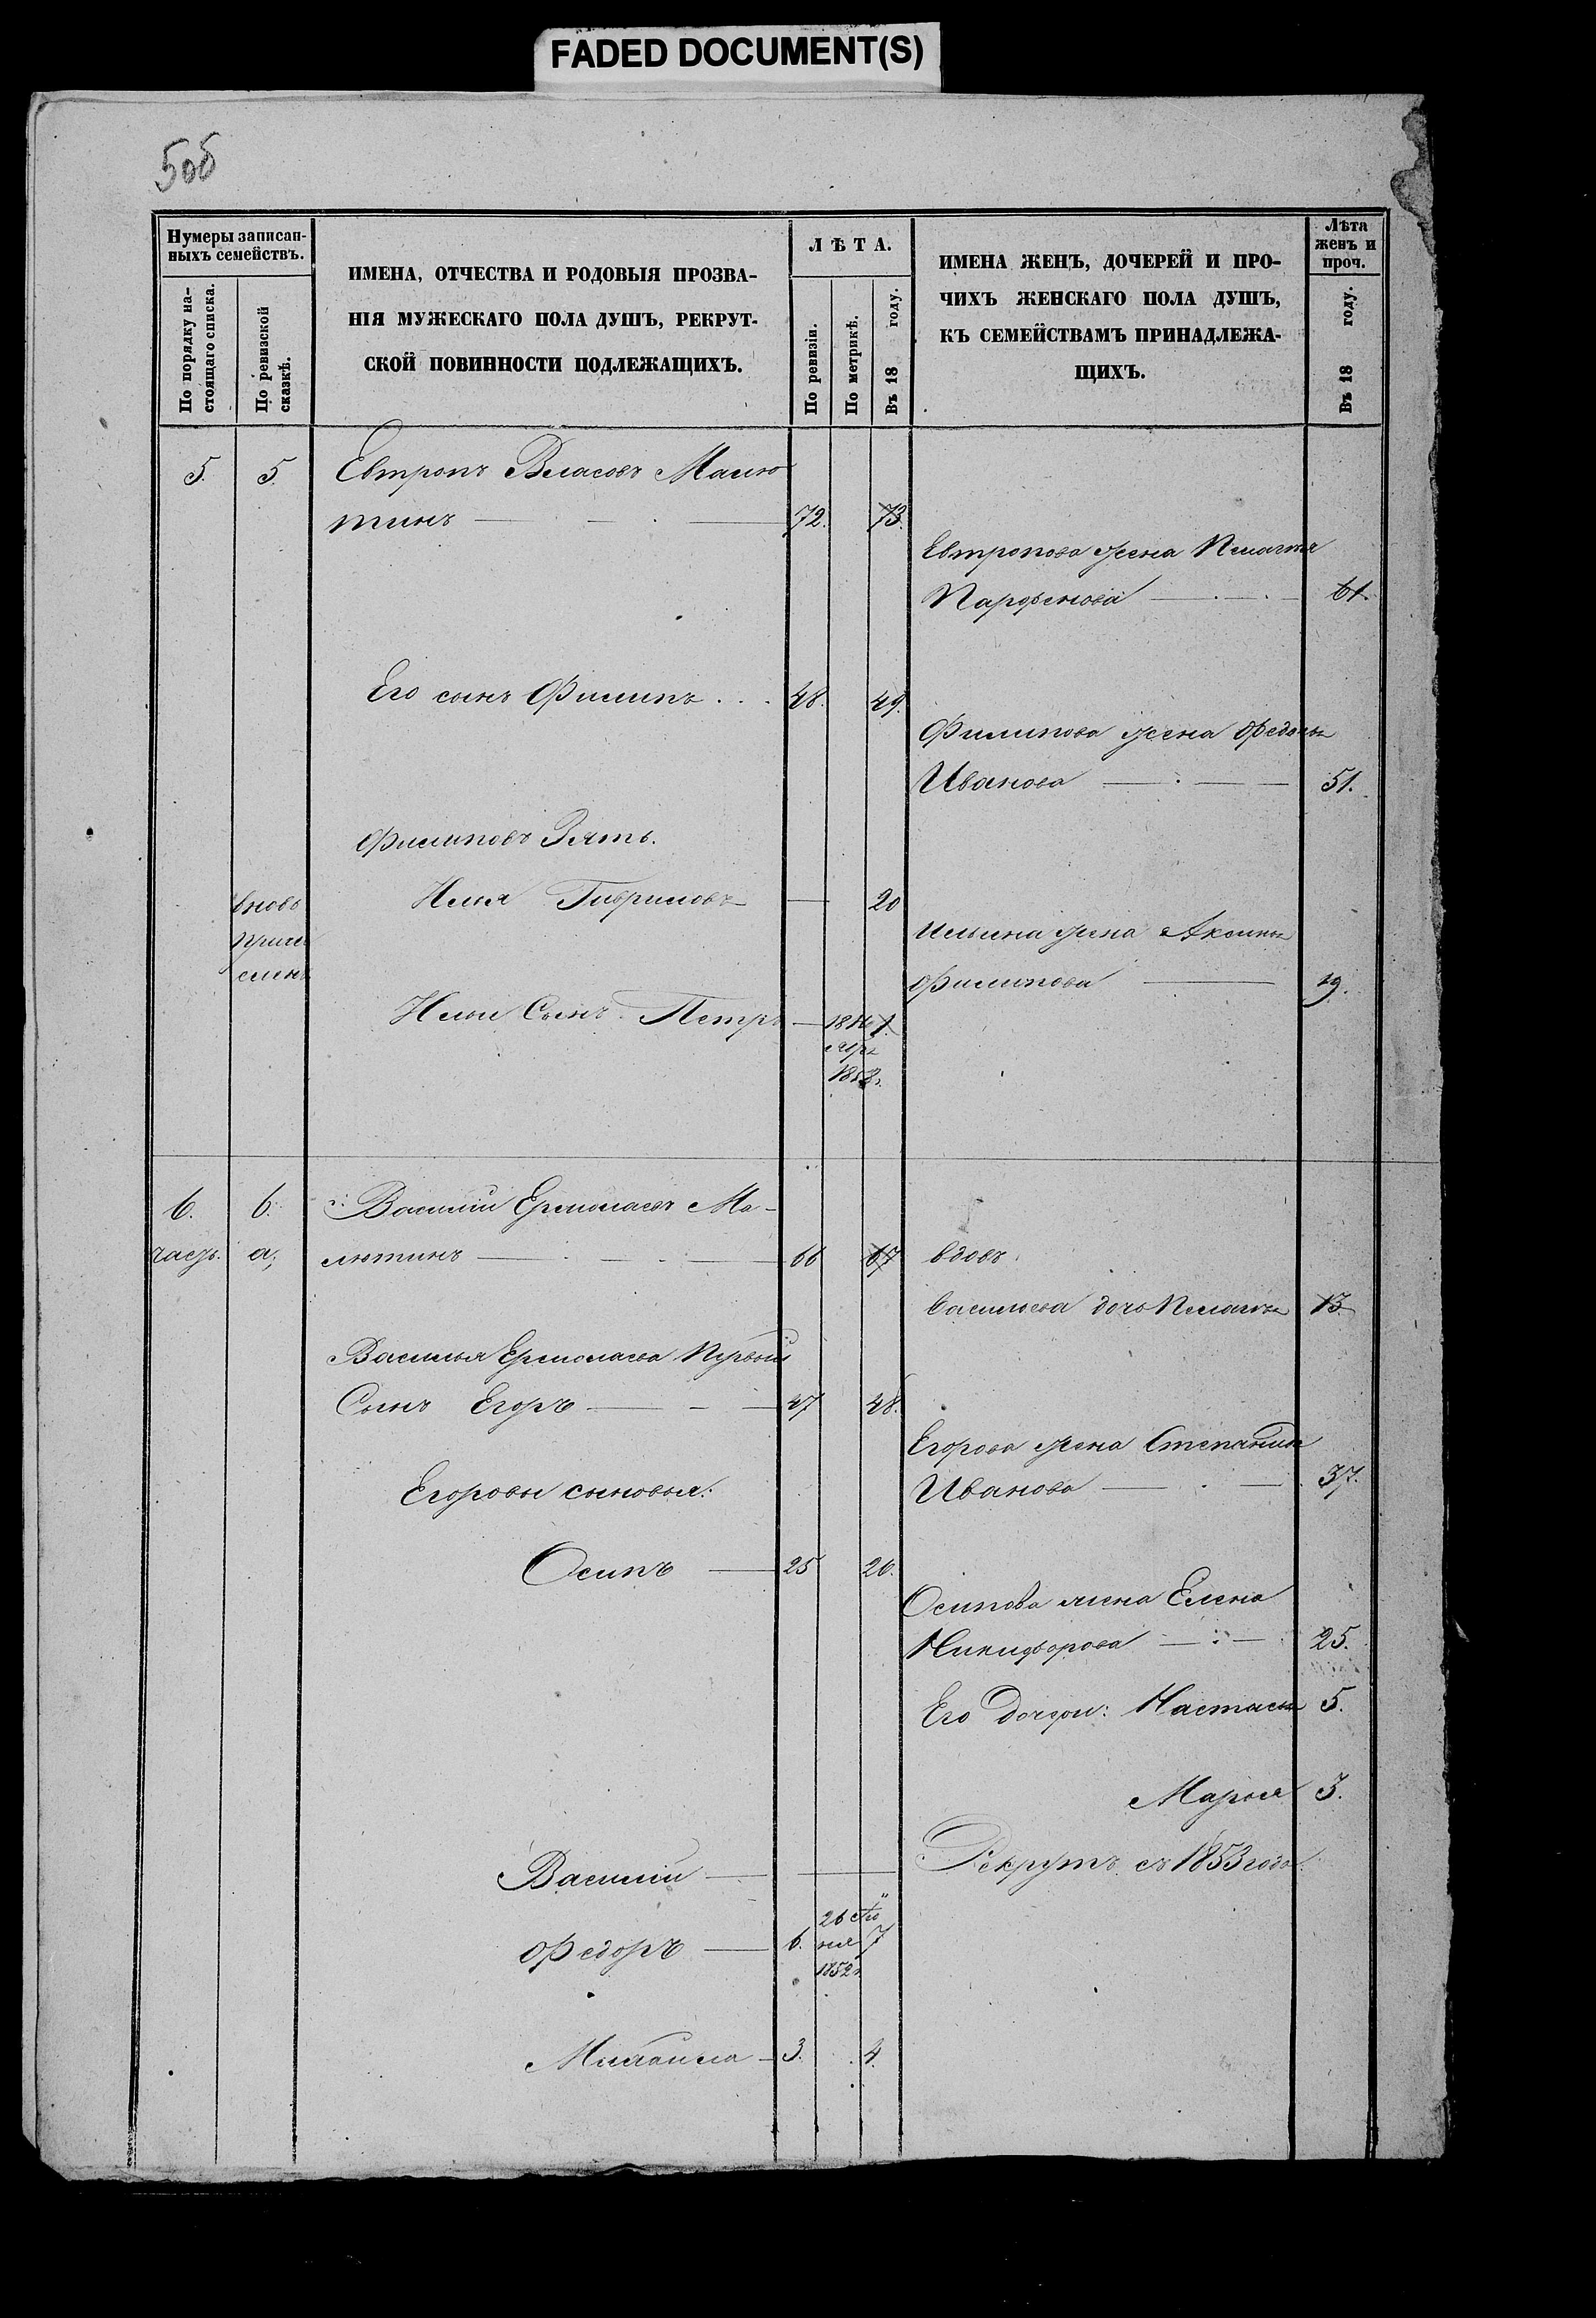 FADED DOCUMENT(S)
506
Нумеры записан-
ныхъ семействъ.
По порядку на-
стоящаго списка.
По ревизской
сказкѣ.
ИМЕНА, ОТЧЕСТВА И РОДОВЫЯ ПРОЗВА-
НІЯ МУЖЕСКАГО ПОЛА ДУШЪ, РЕКРУТ-
СКОЙ ПОВИННОСТИ ПОДЛЕЖАЩИХЪ.
ЛѢТА.
По ревизіи.
По метрикѣ.
Въ 18 году.
ИМЕНА ЖЕНЪ, ДОЧЕРЕЙ И ПРО-
ЧИХЪ ЖЕНСКАГО ПОЛА ДУШЪ,
КЪ СЕМЕЙСТВАМЪ ПРИНАДЛЕЖА-
ЩИХЪ.
Лѣта
женъ и
проч.
Въ 18 году.
5. 5. Евтропъ Власовъ Малю
тинъ 72. 73.
Евтропова жена Пелагея
Парфенова 61.
Его сынъ Филипъ . . . 48. 49.
Филипова жена Федосья
Иванова 51.
Филиповъ Зять.
вновь Илья Гавриловъ 20
Ильина жена Акулина
Филипова 19.
Ильи Сынъ Петръ 1.
6. 6. Василий Ермолаевъ Ма-
часть. а, лютинъ 66 67 вдовъ.
Васильева дочь Пелагея 13.
Василья Ермолаева Первый
Сынъ Егоръ 47 48.
Егорова жена Степанида
Иванова 37.
Егоровы сыновья:
Осипъ 25 26.
Осипова жена Елена
Никифорова 25.
Его Дочери: Настасья 5.
Марья 3.
Василий Рекрутъ съ 1853 года.
26 Ію
Федоръ 6. ня 7
1852г
Михаила 3. 4.